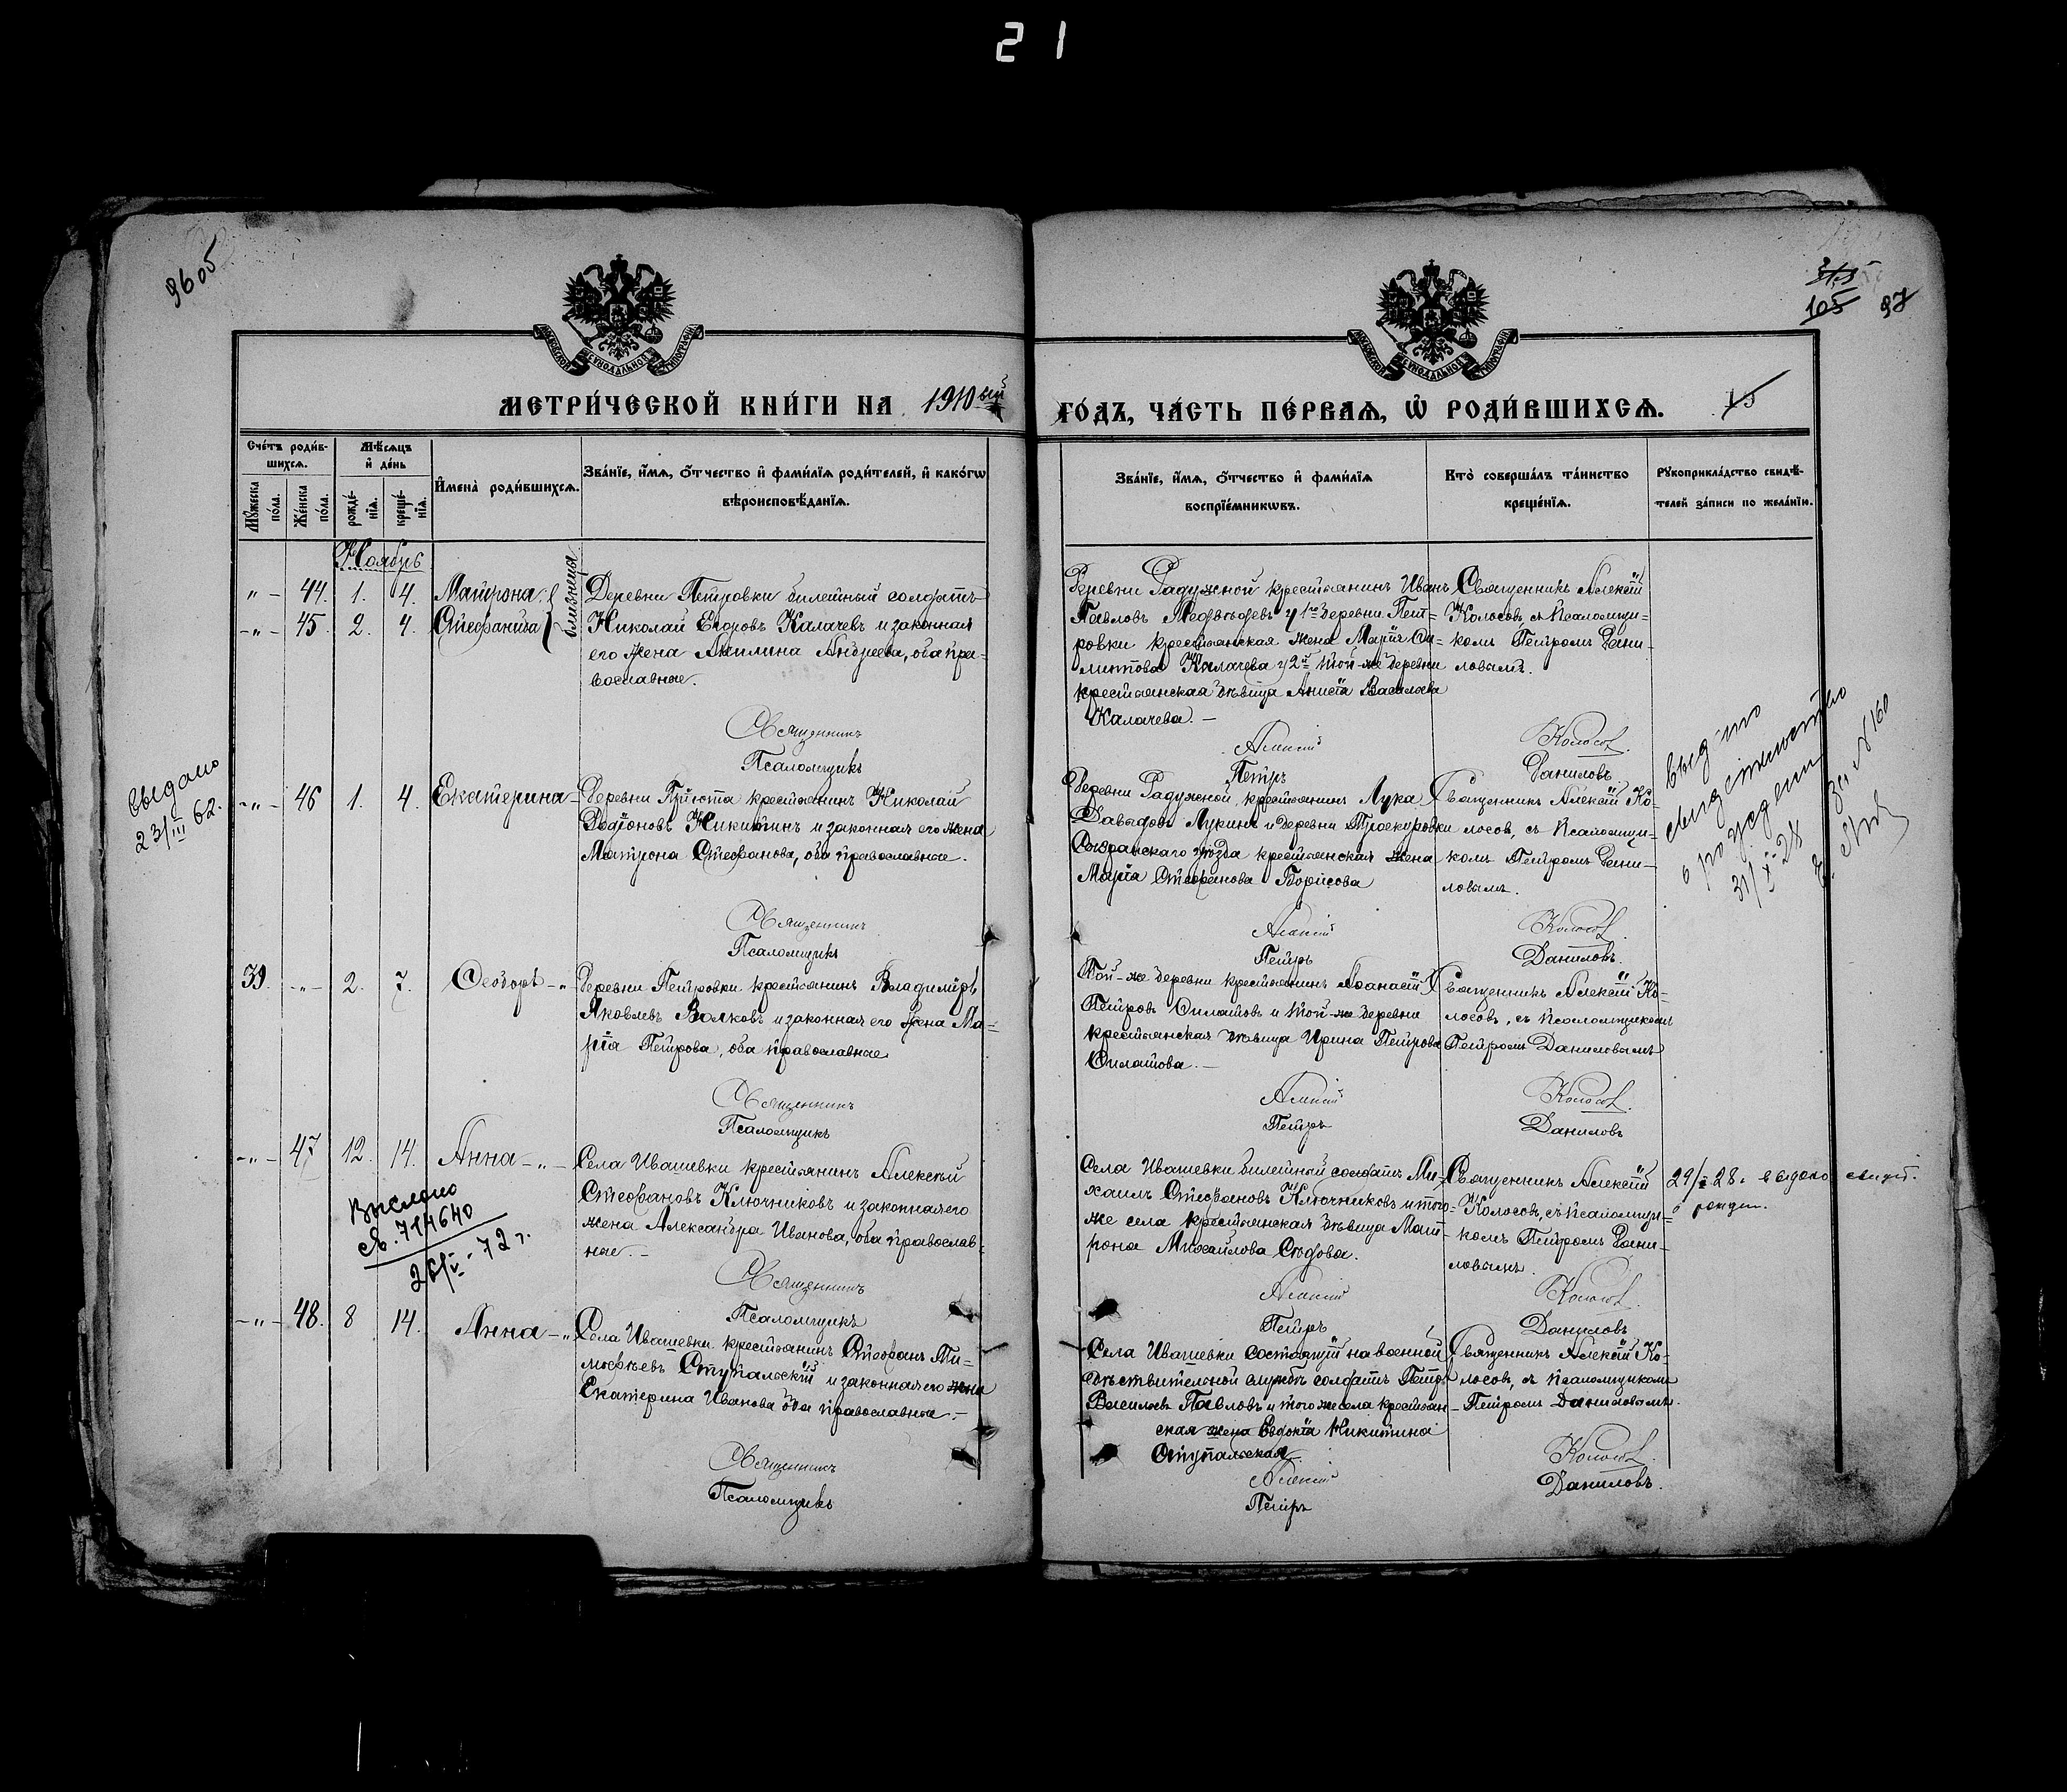 21
96 об
105
97
15
МЕТРИ́ЧЕСКОЙ КНИ́ГИ НА 1910 вый ГО́ДЪ, ЧА́СТЬ ПЕ́РВАЯ, Ѡ҆ РОДИ́ВШИХСЯ.
Сче́тъ роди́в-
шихся.
Мѣ́сяцъ
и҆ де́нь
И҆мена̀ роди́вшихся.
Зва́нїе, и҆́мя, ѻ҆́тчество и҆ фами́лїя роди́телей, и҆ како́гѡ
вѣроисповѣ́данїя.
Зва́нїе, и҆́мя, ѻ҆́тчество и҆ фами́лїя
воспрїе́мникѡвъ.
Кто̀ соверша́лъ та́инство
креще́нїя.
Рꙋкоприкла́дство свидѣ́-
телей за́писи по жела́нїю.
Мꙋ́жеска
по́ла.
Же́нска
по́ла.
рожде́-
нїя.
креще́-
нїя.
Ноябрь
" - 44. 1. 4. Матрона
-"- 45. 2. 4. Стефанида
близнецы
Деревни Петровки билетный солдатъ
Николай Егоровъ Калачевъ и законная
его жена Акилина Андреева, оба пра-
вославные.
Священникъ
Псаломщикъ
Деревни Радужной крестьянинъ Иванъ
Павловъ Медвѣдевъ у 1го деревни Пет-
ровки крестьянская жена Марія
Калачева у 2й той-же деревни
крестьянская дѣвица Анисія Васильева
Калачева. -
Алексій
Петръ
Священникъ Алексій
Колосовъ, съ Псаломщи-
комъ Петромъ Дани-
ловымъ.
Колосовъ.
Даниловъ.
выдано
23/III 62.
-"- 46 1. 4. Екатерина -
Деревни Пріюта крестьянинъ Николай
Родіоновъ Никитинъ и законная его жена
Матрона Стефанова, оба православные.
Священникъ
Псаломщикъ
Деревни Радужной, крестьянинъ Лука
Давыдовъ Лукинъ и деревни Проскуровки
Сызранскаго уѣзда крестьянская жена
Марія Стефанова Борисова
Алексій
Петръ
Священникъ Алексій Ко-
лосовъ, съ Псаломщи-
комъ Петромъ Дани-
ловымъ.
Колосовъ.
Даниловъ.
выдано
свидетельство
о рождении
31/X-28 № 160
39. -"- 2. 7. Ѳеодоръ - "
Деревни Петровки крестьянинъ Владиміръ
Яковлевъ Волковъ и законная его жена Ма-
рія Петрова, оба православные
Священникъ
Псаломщикъ
Той-же деревни крестьянинъ Аѳанасій
Петровъ Силатовъ и той-же деревни
крестьянская дѣвица Ирина Петрова
Силатова. -
Алексій
Петръ
Священникъ Алексій Ко-
лосовъ, съ Псаломщикомъ
Петромъ Даниловымъ
Колосовъ.
Даниловъ
-"- 47 12. 14. Анна - " -
Выслано
св. 714640
26/V-72 г.
Села Ивашевки крестьянинъ Алексѣй
Стефановъ Ключниковъ и законная его
жена Александра Иванова, оба православ-
ные. -
Священникъ
Псаломщикъ
Села Ивашевки билетный солдатъ Ми-
хаилъ Стефановъ Ключниковъ и того-
же села крестьянская дѣвица Мат-
рона Михайлова Сѣдова.
Алексій
Петръ
Священникъ Алексій
Колосовъ, съ Псаломщи-
комъ Петромъ Дани-
ловымъ.
Колосовъ.
Даниловъ
выдано свидет.
о рожден.
-"- 48. 8 14. Анна - "
Села Ивашевки крестьянинъ Стефанъ Ти-
мофѣевъ Ступальскій и законная его жена
Екатерина Иванова оба православные. -
Священникъ
Псаломщикъ
Села Ивашевки состоящій на военной
дѣствительной службѣ солдатъ Петръ
Васильевъ Павловъ и того же села крестьян-
ская жена Евдокія Никитина
Ступальская.
Алексій
Петръ
Священникъ Алексій Ко-
лосовъ, съ Псаломщикомъ
Петромъ Даниловымъ.
Колосовъ.
Даниловъ.